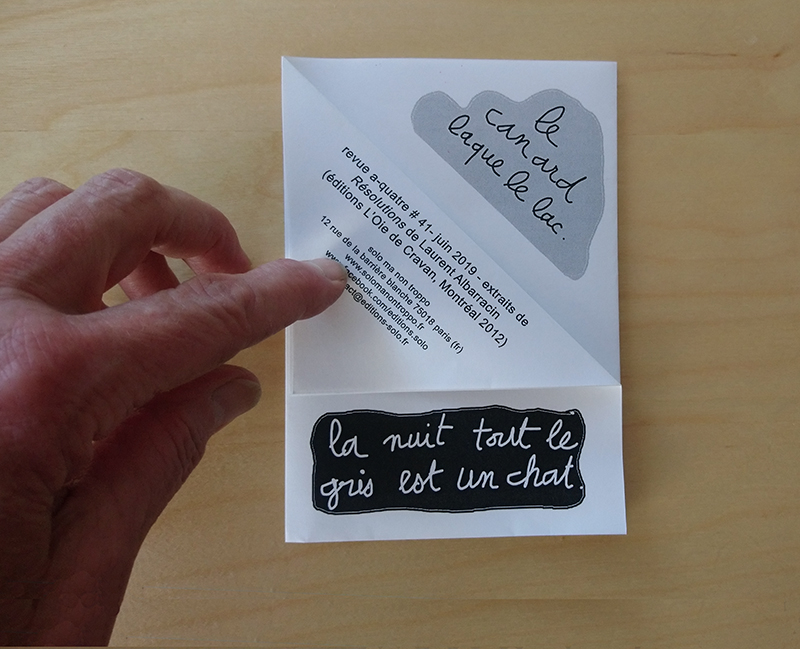 le
canard
laque le lac.
revue a-quatre # 41- juin 2019 - extraits de
Résolutions de Laurent Albarracin
(éditions L'Oie de Cravan, Montréal 2012)
solo ma non troppo
12 rue de la barrière blanche 75018 paris (fr)
www.solomanontroppo.fr
www.facebook.com/editions.solo
@editions-solo.fr
la nuit tout le
gris est un chat.